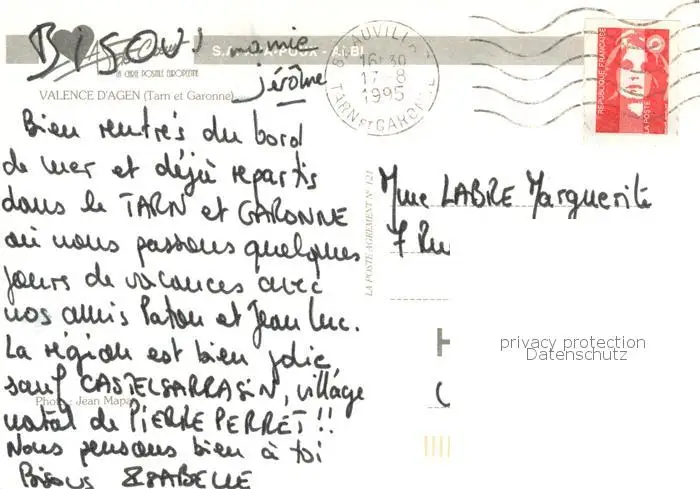 Bisous mamie
jérôme
S.A. APA-POUX - ALBI
LA CARTE POSTALE EUROPÉENNE
VALENCE D'AGEN (Tarn et Garonne)
16h30
17-8
1995
TARN ET GARONNE
RÉPUBLIQUE FRANÇAISE
LA POSTE
Bien rentrés du bord
de mer et déjà repartis
dans le TARN et GARONNE
où nous passons quelques
jours de vacances avec
nos amis Patou et Jean Luc.
La région est bien jolie
sauf CASTELSARRASIN, village
natal de PIERRE PERRET !!
Nous pensons bien à toi
Bisous ISABELLE
Photo : Jean Mapa
LA POSTE AGREMENT N° 121
Mme LABRE Marguerite
7 Ru
privacy protection
Datenschutz